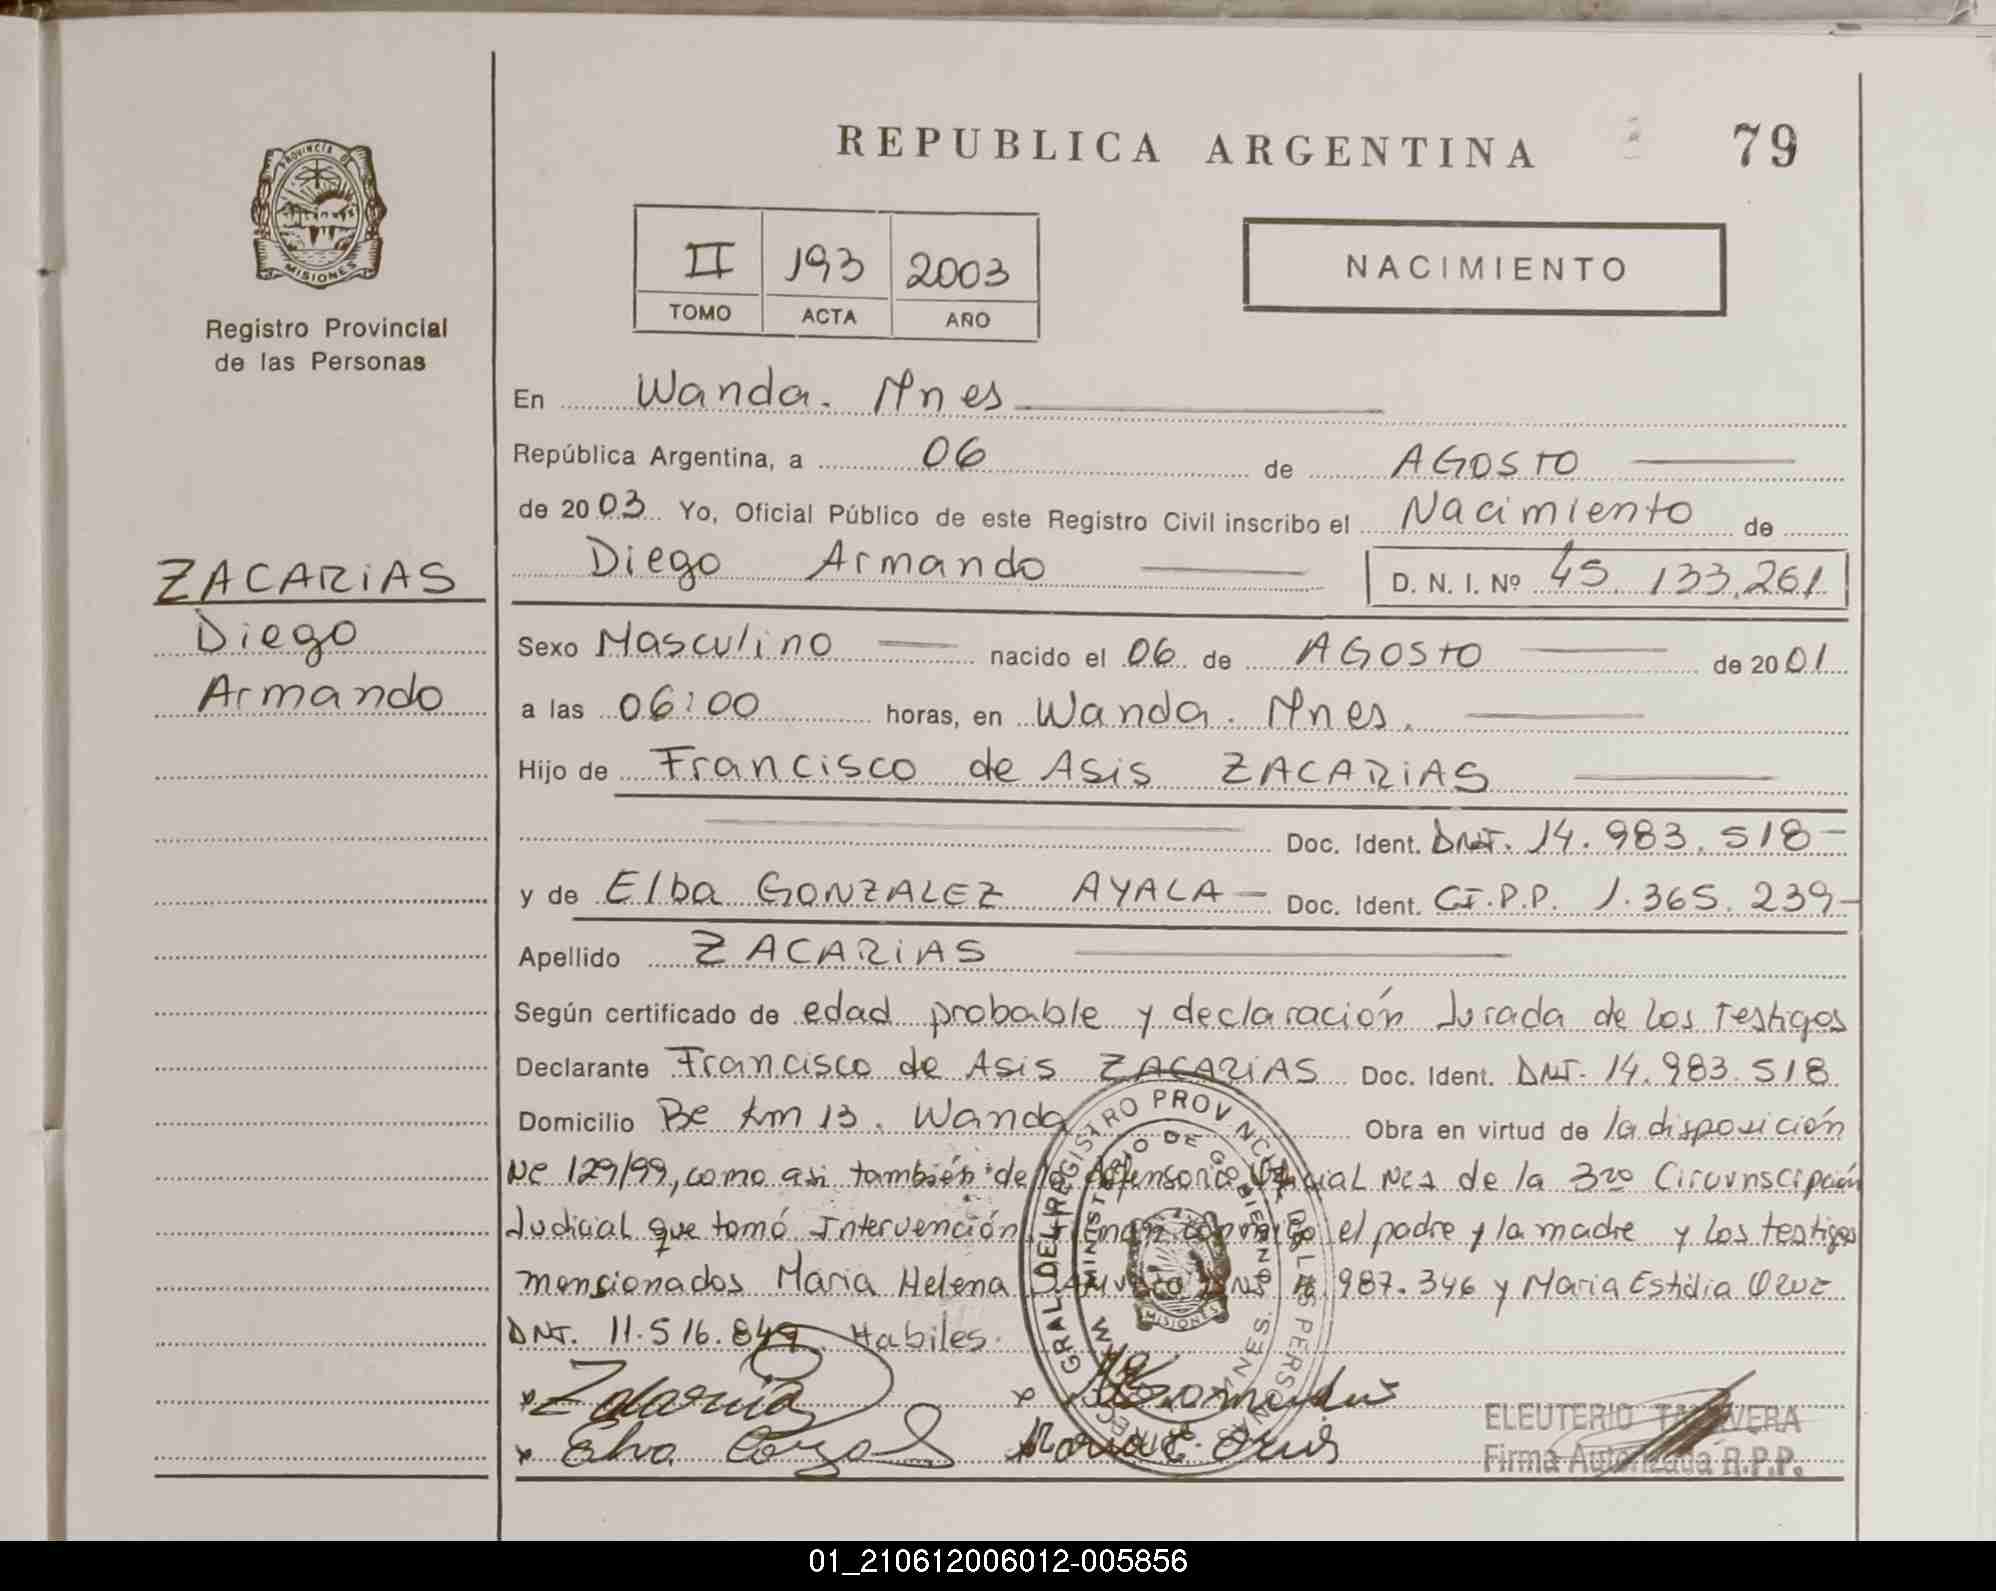 REPUBLICA ARGENTINA
79
PROVINCIA DE
MISIONES
Registro Provincial
de las Personas
II 193 2003
TOMO ACTA AÑO
NACIMIENTO
En Wanda. Mnes
República Argentina, a 06 de AGOSTO
de 2003 Yo, Oficial Público de este Registro Civil inscribo el Nacimiento de
Diego Armando D. N. I. Nº 45.133.261
ZACARIAS
Diego
Armando
Sexo Masculino nacido el 06 de AGOSTO de 2001
a las 06:00 horas, en Wanda. Mnes.
Hijo de Francisco de Asis ZACARIAS
Doc. Ident. DNI. 14.983.518
y de Elba GONZALEZ AYALA Doc. Ident. CI.P.P. 1.365.239
Apellido ZACARIAS
Según certificado de edad probable y declaración Jurada de los testigos
Declarante Francisco de Asis ZACARIAS Doc. Ident. DNI. 14.983.518
Domicilio Be km 13. Wanda Obra en virtud de la disposición
Nº 129/99, como asi también de la defensoria Oficial Nº1 de la 3ra Circunscipción
Judicial que tomó Intervención. Firman conmigo el padre y la madre y los testigos
mensionados Maria Helena DNI 987.346 y Maria Estidia
DNI. 11.516.849 Habiles.
REGISTRO PROVINCIAL DE LAS PERSONAS
MINISTERIO DE GOBIERNO
MISIONES
Zacarias
Elva
Maria E.
ELEUTERIO TALAVERA
Firma Autorizada R.P.P.
01_210612006012-005856